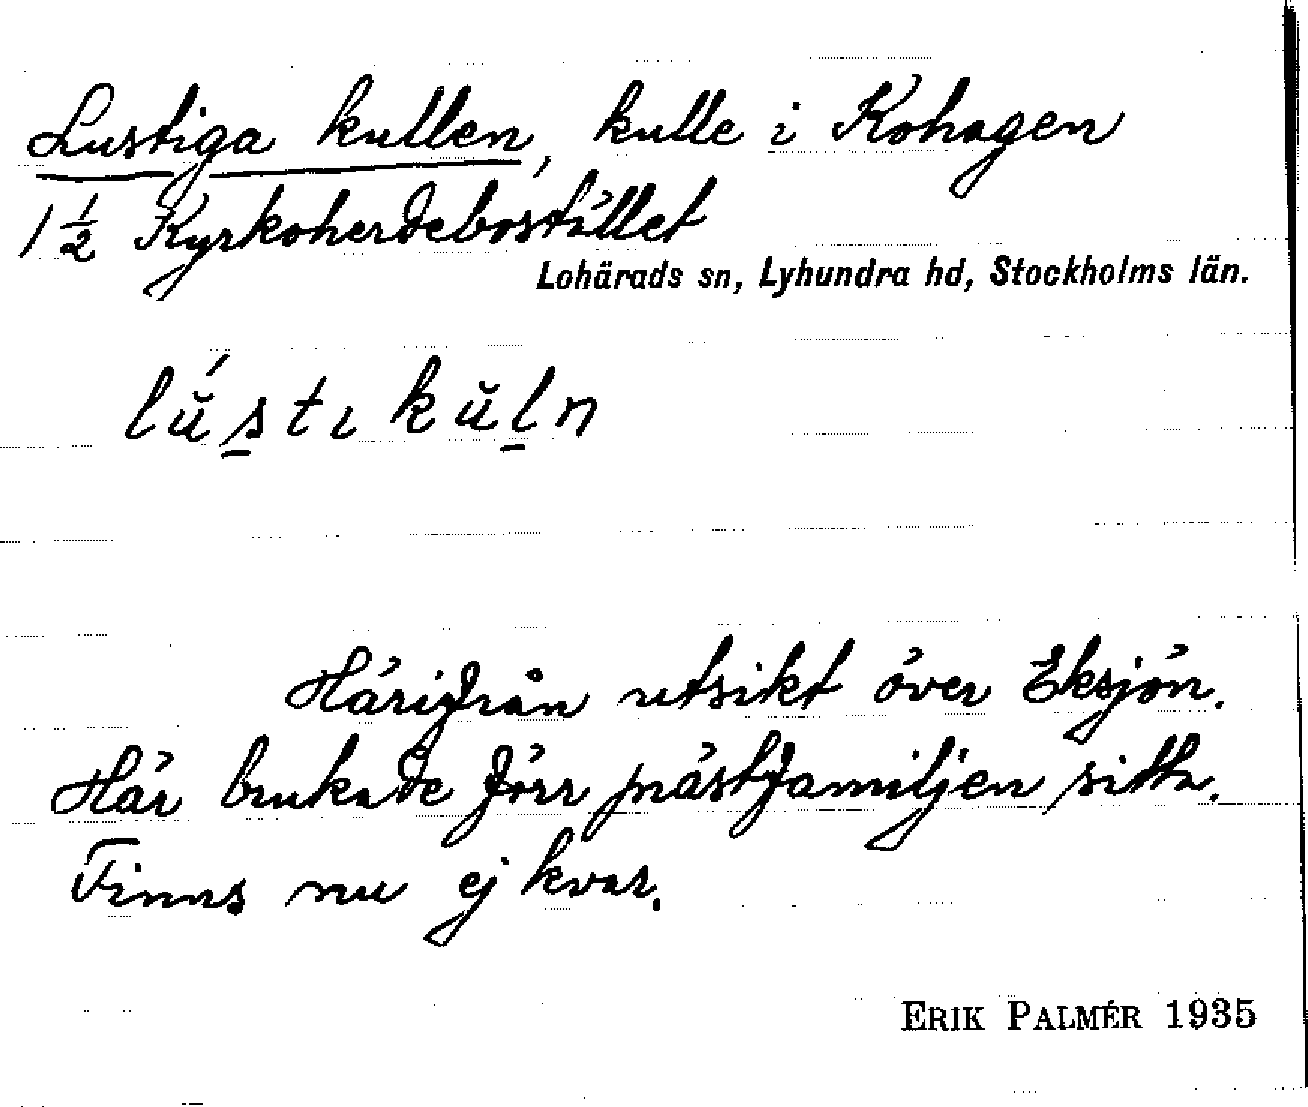 Lustiga kullen, kulle i Kohagen
1 1/2 Kyrkoherdebostället
Lohärads sn, Lyhundra hd, Stockholms län.
lú̆s̱tı kŭḻn
Härifrån utsikt över Eksjön.
Här brukade förr prästfamiljen sitta.
Finns nu ej kvar.
ERIK PALMÉR 1935